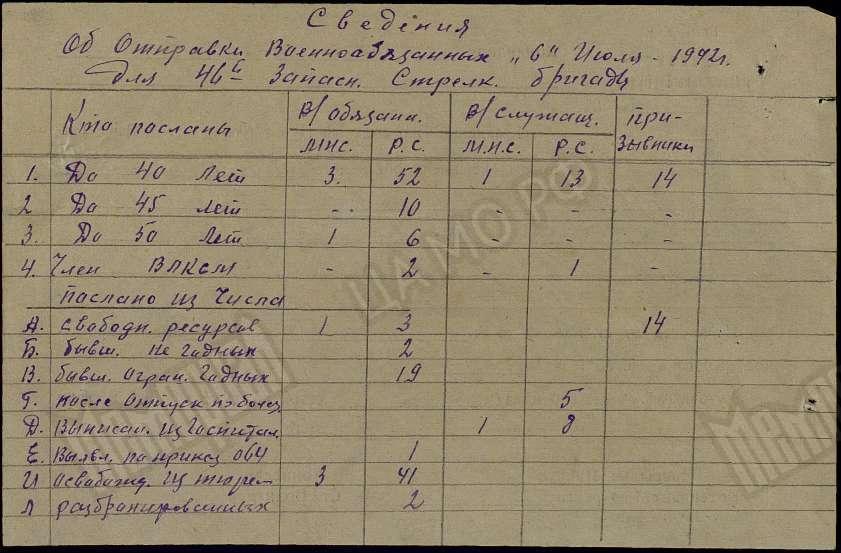 Сведения
Об Отправки Военнообязанных "6" Июля - 1942г.
для 46й Запасн. Стрелк. бригады
Кто посланы В/обязанн. В/служащ. при-зывники
М.Н.С. Р.С. М.Н.С. Р.С.
1. До 40 Лет 3. 52 1 13 14
2 До 45 Лет - 10 - - -
3. До 50 Лет 1 6 - - -
4. Член ВЛКСМ - 2 - 1 -
послано из числа
А. свободн. ресурсов 1 3 14
Б. бывш. не годных 2
В. бывш. огран. годных 19
Г. после отпуск по болез. 5
Д. Выписан. из Госпитал. 1 8
Е. Выявл. по приказ 064 1
И освобожд. из тюрем 3 41
Л разбронированных 2
ЦАМО РФ